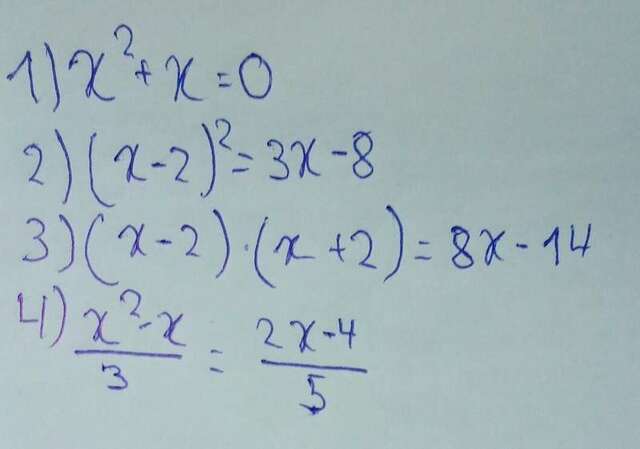 1) x²+x=0
2) (x-2)²=3x-8
3) (x-2)·(x+2)=8x-14
4) x²-x/3 = 2x-4/5